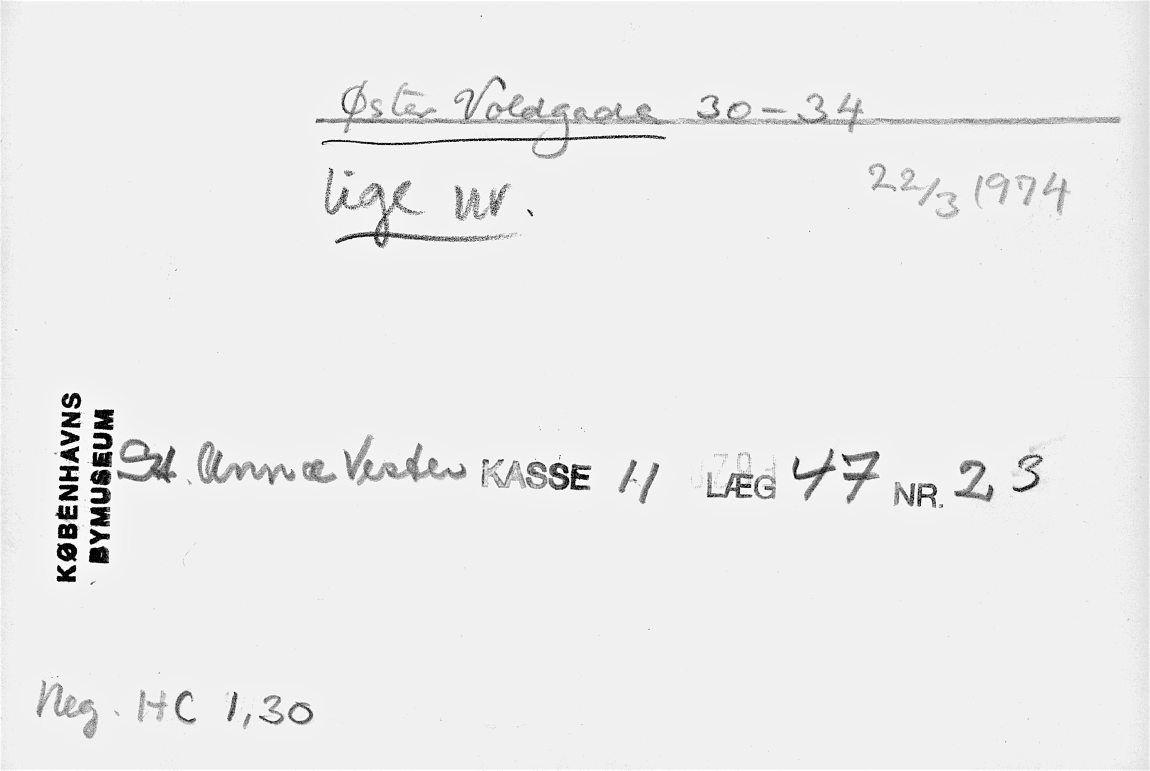 Øster Voldgade 30-34
lige nr.
22/3 1974
KØBENHAVNS
BYMUSEUM
Skt. Annæ Vester KASSE 11 LÆG 47 NR. 23
Neg. HC 1,30